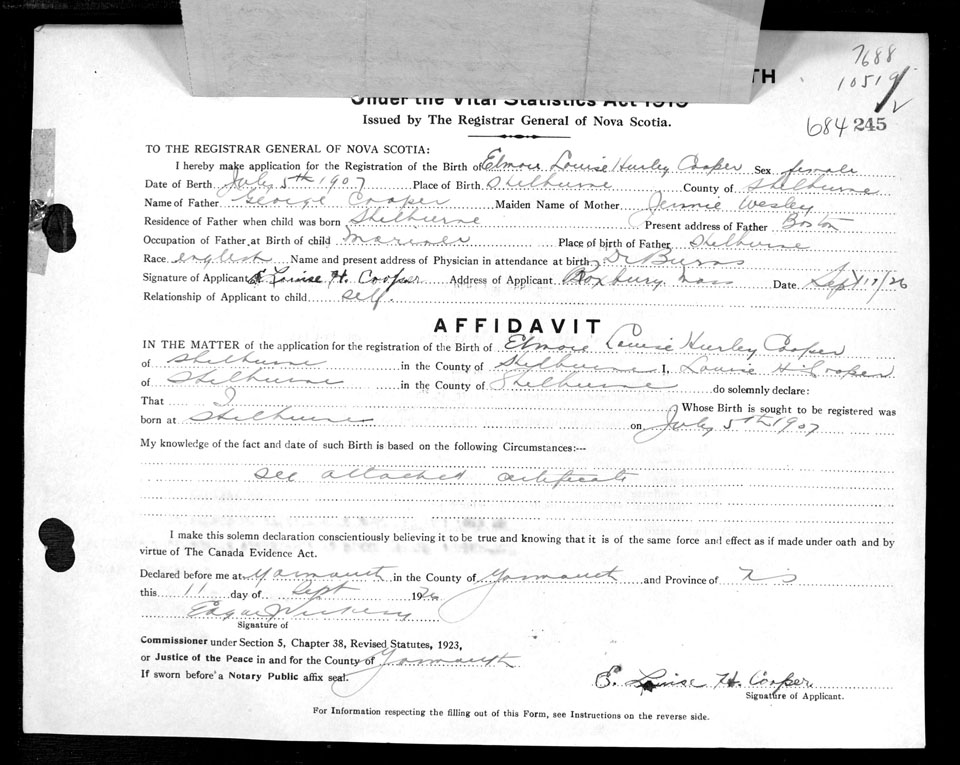 7688
10519
TH
Under the Vital Statistics Act 1919
Issued by The Registrar General of Nova Scotia.
684 245
TO THE REGISTRAR GENERAL OF NOVA SCOTIA:
I hereby make application for the Registration of the Birth of Elmore Louise Hurley Cooper Sex female
Date of Berth July 5th 1907 Place of Birth Shelburne County of Shelburne
Name of Father George Cooper Maiden Name of Mother Jennie Wesley
Residence of Father when child was born Shelburne Present address of Father Boston
Occupation of Father at Birth of child Mariner Place of birth of Father Shelburne
Race english Name and present address of Physician in attendance at birth Dr Burns
Signature of Applicant E Louise H. Cooper Address of Applicant Roxbury Mass Date Sept 11/26
Relationship of Applicant to child self.
AFFIDAVIT
IN THE MATTER of the application for the registration of the Birth of Elmore Louise Hurley Cooper
of Shelburne in the County of Shelburne I, Louise H Cooper
of Shelburne in the County of Shelburne do solemnly declare:
That I Whose Birth is sought to be registered was
born at Shelburne on July 5th 1907
My knowledge of the fact and date of such Birth is based on the following Circumstances:--
see attached certificate
I make this solemn declaration conscientiously believing it to be true and knowing that it is of the same force and effect as if made under oath and by
virtue of The Canada Evidence Act.
Declared before me at Yarmouth in the County of Yarmouth and Province of N S
this 11 day of Sept 1926
Edgar
Signature of
Commissioner under Section 5, Chapter 38, Revised Statutes, 1923,
or Justice of the Peace in and for the County of Yarmouth
If sworn before a Notary Public affix seal.
E. Louise H. Cooper
Signature of Applicant.
For Information respecting the filling out of this Form, see Instructions on the reverse side.